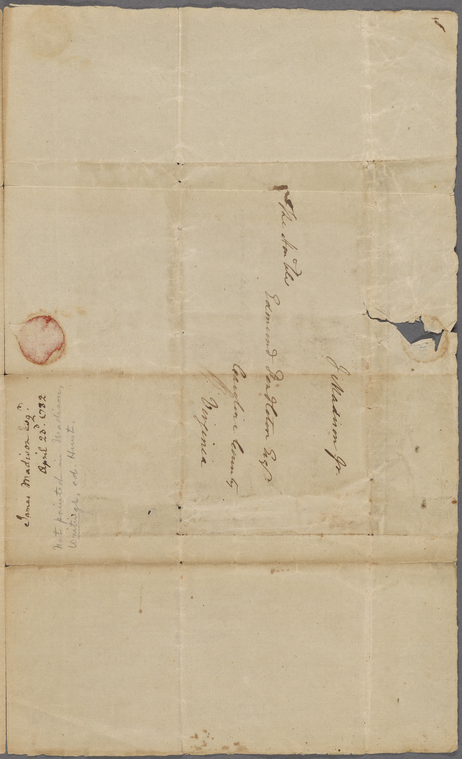 The Hon'ble
Edmund Pendleton Esqr
Caroline County
Virginia
J Madison Jr
James Madison Esqr
April 23d 1782
Not printed in Madison,
Writings, ed. Hunt.